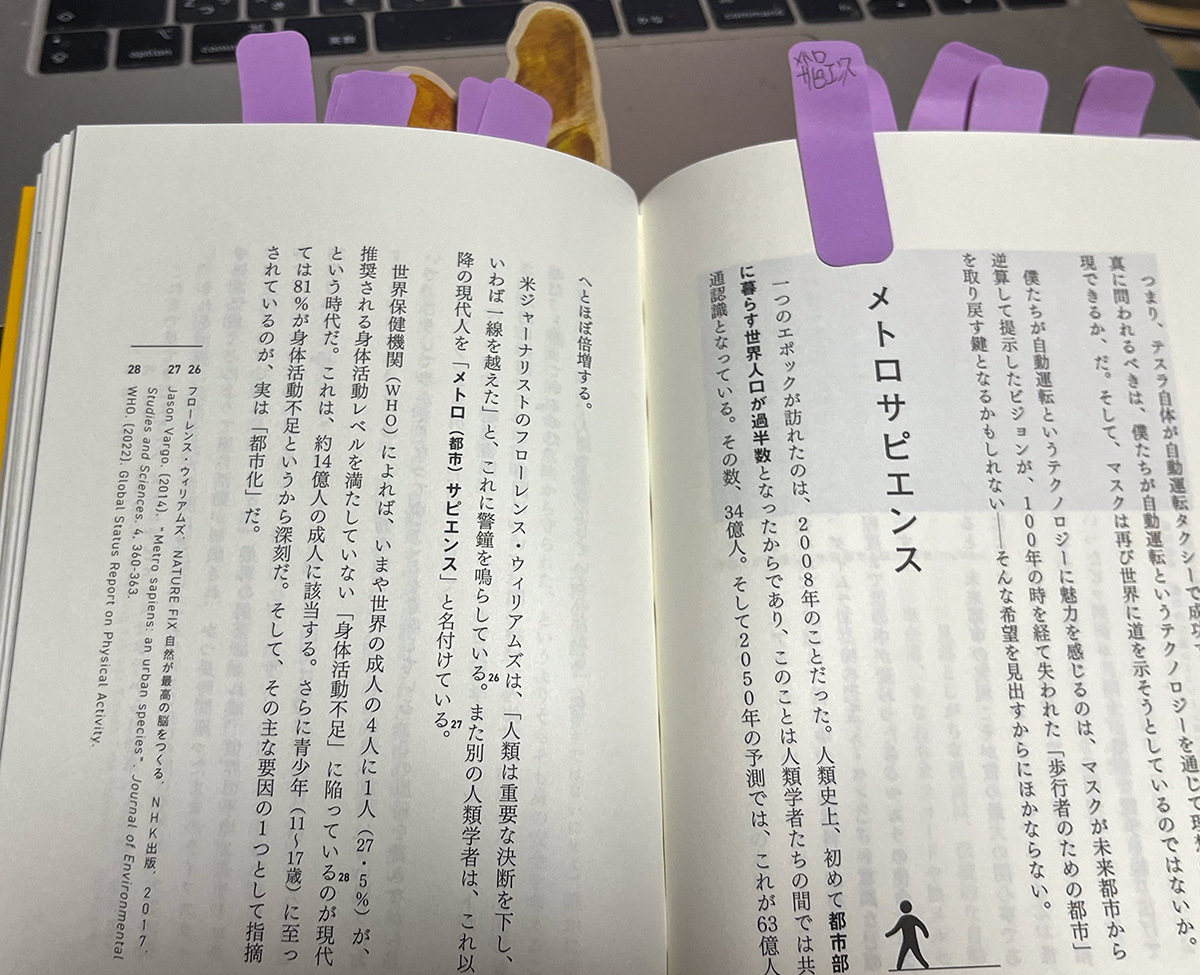 つまり、テスラ自体が自動運転タクシーで成功
真に問われるべきは、僕たちが自動運転というテクノロジーを通じて理想
現できるか、だ。そして、マスクは再び世界に道を示そうとしているのではないか。
僕たちが自動運転というテクノロジーに魅力を感じるのは、マスクが未来都市から
逆算して提示したビジョンが、100年の時を経て失われた「歩行者のための都市」
を取り戻す鍵となるかもしれない――そんな希望を見出すからにほかならない。
メトロサピエンス
一つのエポックが訪れたのは、2008年のことだった。人類史上、初めて都市部
に暮らす世界人口が過半数となったからであり、このことは人類学者たちの間では共
通認識となっている。その数、34億人。そして2050年の予測では、これが63億人
へとほぼ倍増する。
米ジャーナリストのフローレンス・ウィリアムズは、「人類は重要な決断を下し、
いわば一線を越えた」と、これに警鐘を鳴らしている。26また別の人類学者は、これ以
降の現代人を「メトロ（都市）サピエンス」と名付けている。27
世界保健機関（WHO）によれば、いまや世界の成人の4人に1人（27・5%）が、
推奨される身体活動レベルを満たしていない「身体活動不足」に陥っている28のが現代
という時代だ。これは、約14億人の成人に該当する。さらに青少年（11〜17歳）に至っ
ては81%が身体活動不足というから深刻だ。そして、その主な要因の1つとして指摘
されているのが、実は「都市化」だ。
26 フローレンス・ウィリアムズ. NATURE FIX 自然が最高の脳をつくる. NHK出版, 2017.
27 Jason Vargo. (2014). "Metro sapiens: an urban species". Journal of Environmental
Studies and Sciences. 4, 360-363.
28 WHO. (2022). Global Status Report on Physical Activity.
メトロ
サピエンス
option
command
英数
かな
command
option